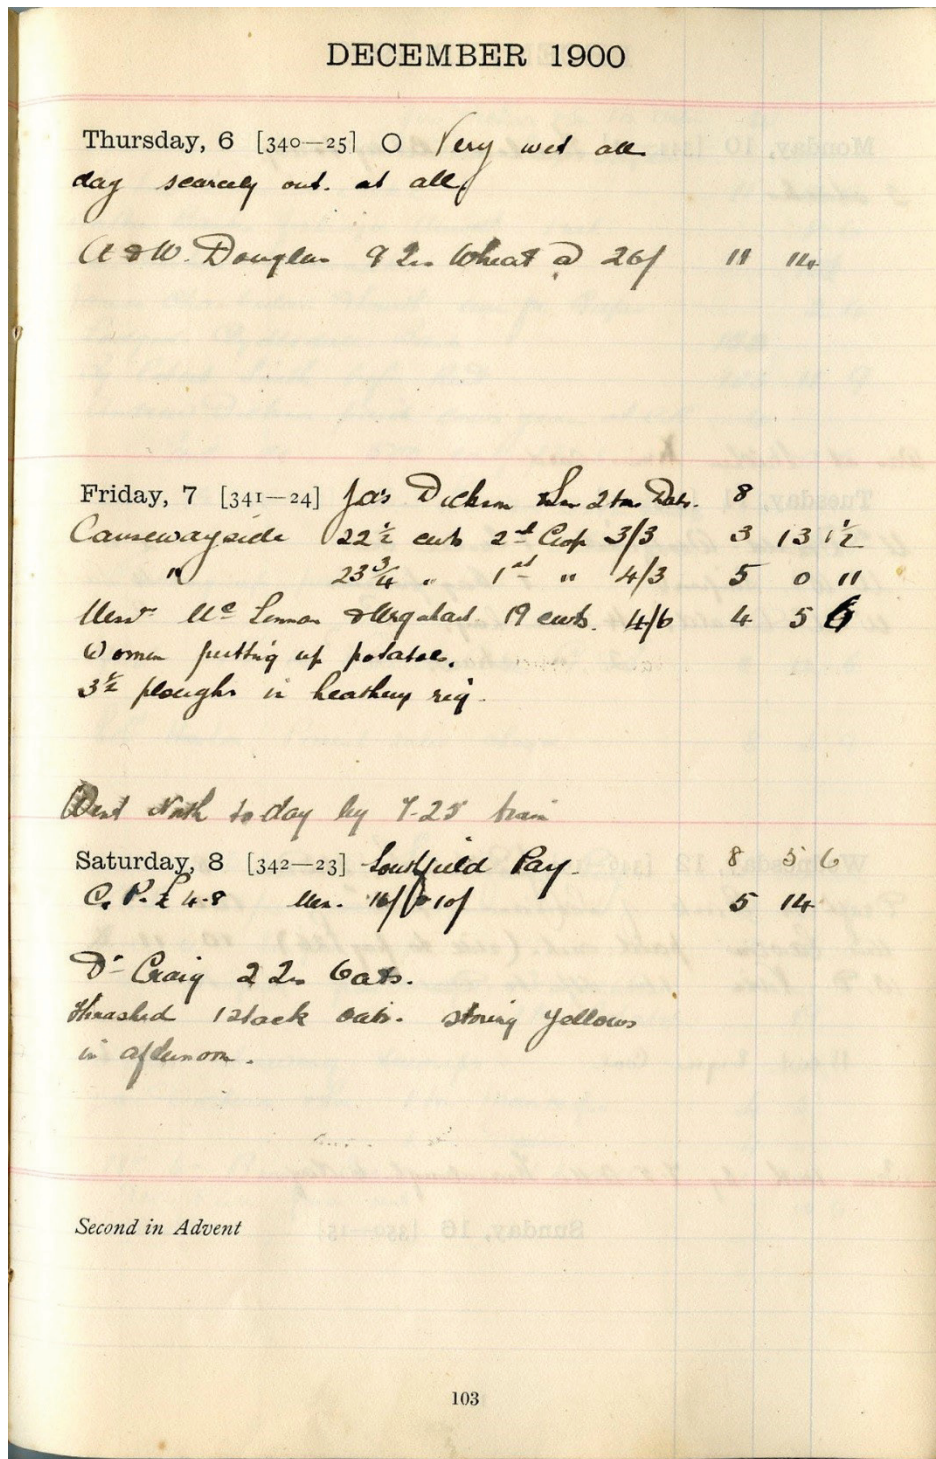 DECEMBER 1900
Thursday, 6 [340—25] O Very wet all
day scarcely out. at all
A & W. Douglas 9 Qrs Wheat @ 26/ 11 14
Friday, 7 [341—24] Jas Dickson & Son 2 tons Oats. 8
Causewayside 22½ cwts 2nd Crop 3/3 3 13 1½
" 23¾ " 1st " 4/3 5 0 11
Mc Lennan & Urquhart 19 cwts. 4/6 4 5 6
Women putting up potatoes.
3½ ploughs in heathery rig.
Went North to-day by 7-25 train
Saturday, 8 [342—23] Southfield Pay. 8 5 6
C. P. £4-8 10/ 5 14
Dr Craig 2 Qrs Oats.
Thrashed 1 stack oats. storing yellows
in afternoon.
Second in Advent
103